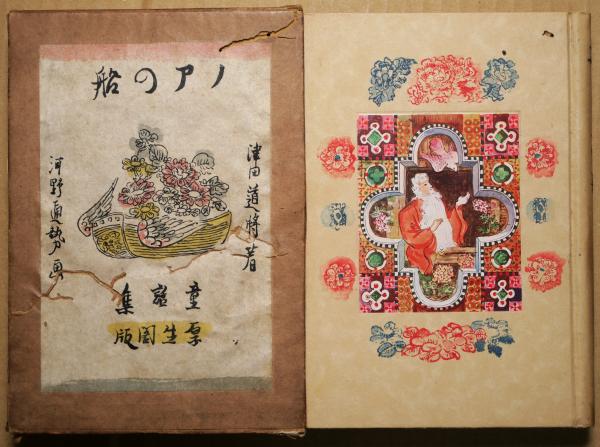 ノアの船
津田道将著
河野通勢画
童謡集
厚生閣版